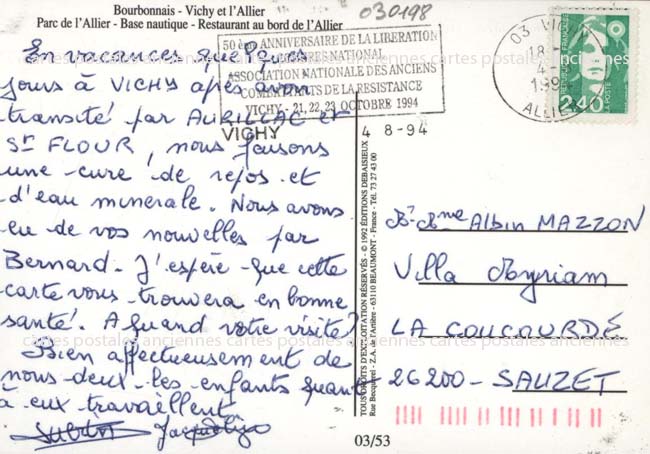 Bourbonnais - Vichy et l'Allier
Parc de l'Allier - Base nautique - Restaurant au bord de l'Allier
030198
50ème ANNIVERSAIRE DE LA LIBERATION
CONGRES NATIONAL
ASSOCIATION NATIONALE DES ANCIENS
COMBATTANTS DE LA RESISTANCE
VICHY - 21, 22, 23 OCTOBRE 1994
VICHY
4 8-94
03 VICHY
18
4
199
ALLIER
REPUBLIQUE FRANÇAISE
LA POSTE
2,40
En vacances quelques
jours à VICHY après avoir
transité par AURILLAC et
St FLOUR, nous faisons
une cure de repos et
d'eau minerale. Nous avons
eu de vos nouvelles par
Bernard. J'espère que cette
carte vous trouvera en bonne
santé. A quand votre visite?
Bien affectueusement de
nous deux les enfants quant
à eux travaillent
TOUS DROITS D'EXPLOITATION RÉSERVÉS - © 1992 ÉDITIONS DEBAISIEUX
Rue Becquerel - Z.A. de l'Artière - 63110 BEAUMONT - France - Tél. 73 27 43 00
Mr Mme Albin MAZZON
Villa Myriam
LA COUCOURDE
26200 - SAUZET
cartes postales anciennes cartes postales anciennes cartes postales anciennes
03/53